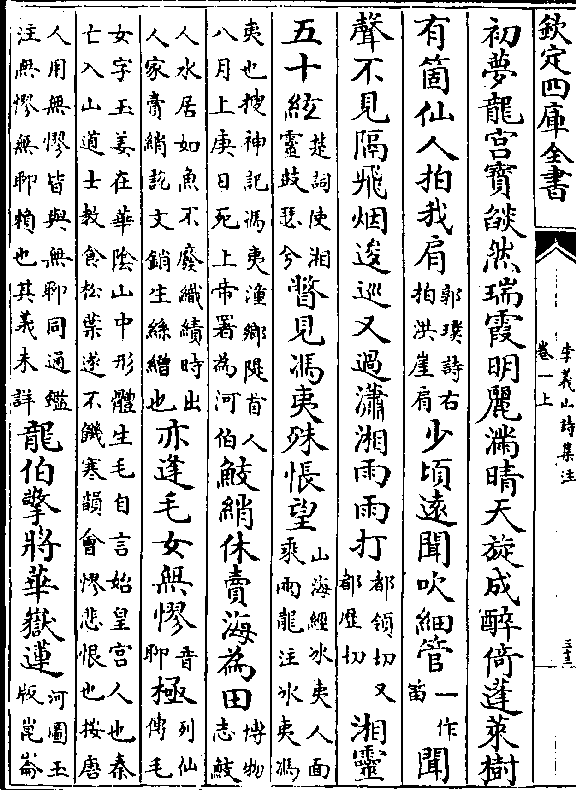 欽定四庫全書
李義山詩集注
卷一上
三十三
初夢龍宮寶燄然瑞霞明麗滿晴天旋成醉倚蓬萊樹
有箇仙人拍我肩郭璞詩右拍洪崖肩少頃遠聞吹細管一作笛聞
聲不見隔飛烟逡巡又過瀟湘雨雨打都領切又都歷切湘靈
五十絃楚詞使湘靈鼓瑟兮瞥見馮夷殊悵望山海經冰夷人面乘兩龍注冰夷馮
夷也搜神記馮夷潼鄉隄首人八月上庚日死上帝署為河伯鮫綃休賣海為田博物志鮫
人水居如魚不廢織績時出人家賣綃說文綃生絲繒也亦逢毛女無憀音聊極列仙傳毛
女字玉姜在華陰山中形體生毛自言始皇宮人也秦亡入山道士教食松葉遂不饑寒韻會憀悲恨也按唐
人用無憀皆與無聊同通鑑注無憀無聊賴也其義未詳龍伯擎將華嶽蓮河圖玉版崑崙